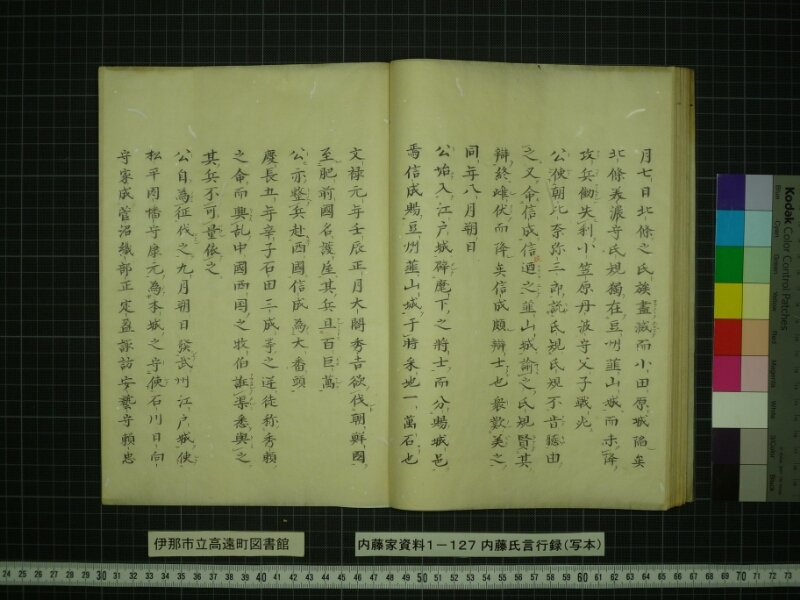 月七日北條之氏族盡滅而小田原城陥矣
北條美濃守氏規獨在豆州韮山城而未降
攻兵働失利小笠原丹波守父子戰死
公使朝比奈弥三郎説氏規氏規不肯聴由
之又命信成信成適之韮山城諭之氏規賢其
辯終雌伏而降矣信成頗辯士也衆歎美之
同年八月朔日
公始入江戸城辟麾下之將士而分賜城邑
焉信成賜豆州韮山城于時采地一萬石也
文禄元年壬辰正月大閤秀吉欲伐朝鮮國
至肥前國名護屋其兵且百巨萬
公亦整兵赴西國信成為大番頭
慶長五年辛子石田三成等之逆徒称秀頼
之命而興乱中國西国之牧伯渠悉與之
其兵不可量依之
公自為征伐之九月朔日發武州江戸城使
松平因幡守康元為本城之守使石川日向
守家成菅沼織部正定盈諏訪安藝守頼忠
伊那市立高遠町図書館
内藤家資料1－127 内藤氏言行録(写本)
Kodak Color Control Patches
Blue Cyan Green Yellow Red Magenta White 3/Color Black